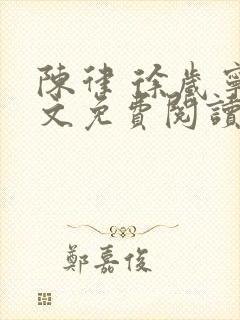 陳律 徐歲寧
文免費閱讀
鄭嘉俊